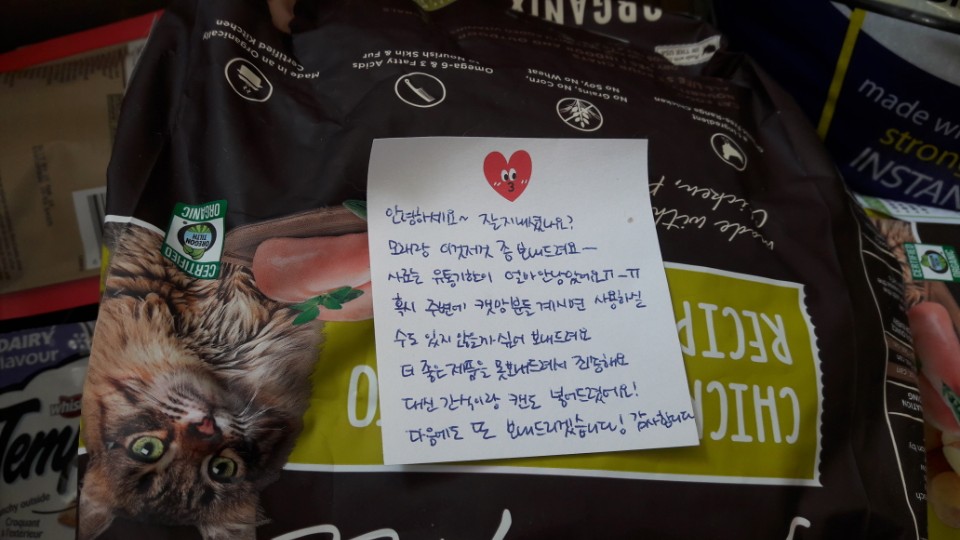 안녕하세요~ 잘지내셨나요?
모래랑 이것저것 좀 보내드려요ㅡ
사료는 유통기한이 얼마안남았어요ㅠㅡㅠ
혹시 주변에 캣맘분들 계시면 사용하실
수도 있지 않을까싶어 보내드려요
더 좋은제품을 못보내드려서 죄송해요
대신 간식이랑 캔도 넣어드렸어요!
다음에도 또 보내드리겠습니다! 감사합니다
ORGANIX
Made in an Organically
Certified Kitchen
Omega-6 & 3 Fatty Acids
to Nourish Skin & Fur
No Grains, No Corn,
No Soy, No Wheat
made with
Chicken,
CERTIFIED
OREGON
TILTH
ORGANIC
CHIC
RECIP
made wi
stron
INSTAN
DAIRY
flavour
Whis
Temp
outside
Croquant
à l'extérieur